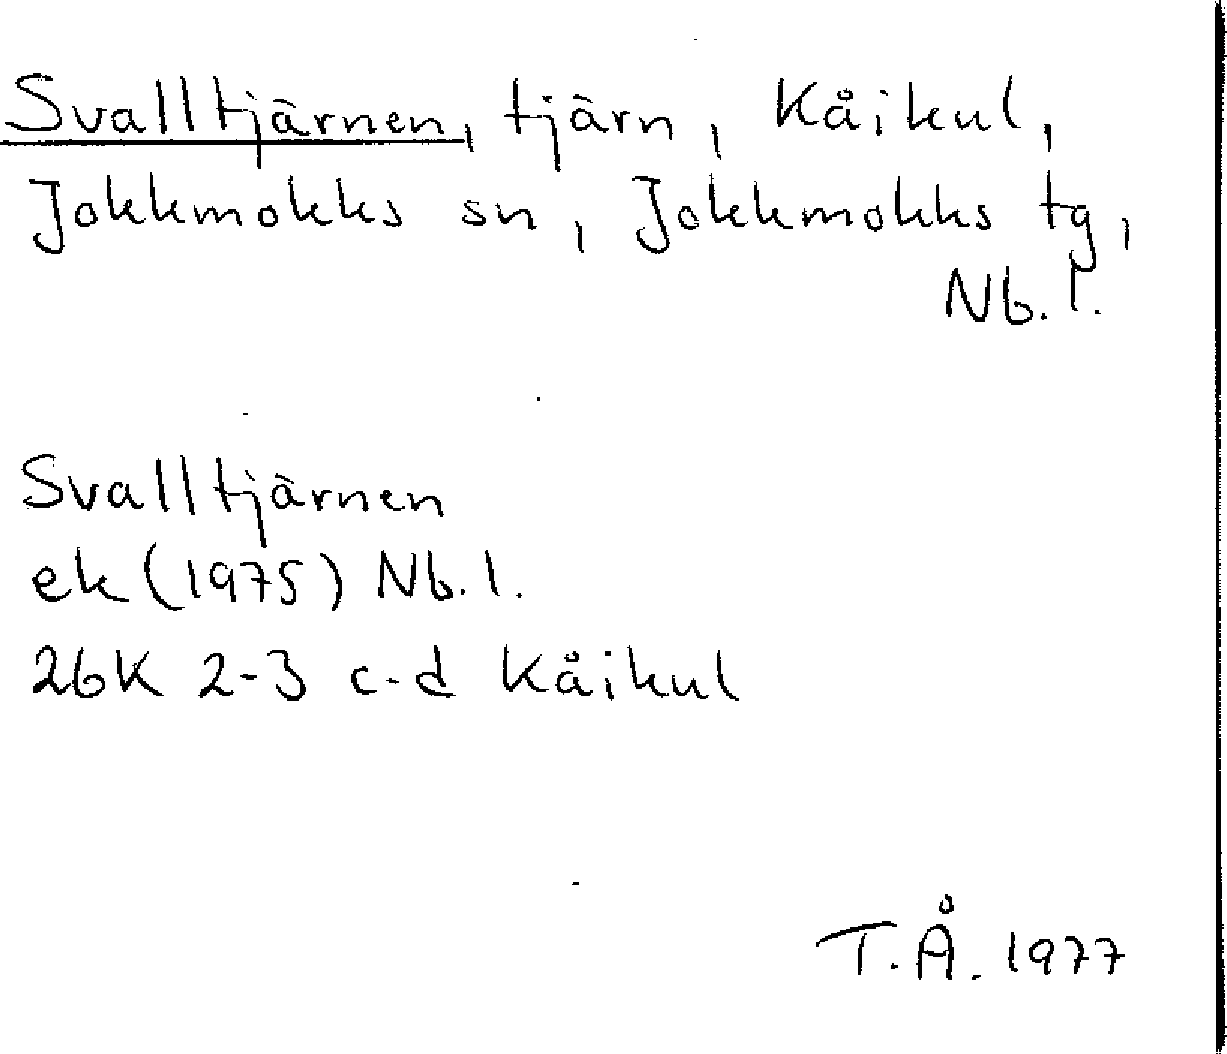 Svalltjärnen, tjärn, Kåikul,
Jokkmokks sn, Jokkmokks tg,
Nb.l.
Svalltjärnen
ek (1975) Nb.l.
26K 2-3 c-d Kåikul
T.Å. 1977